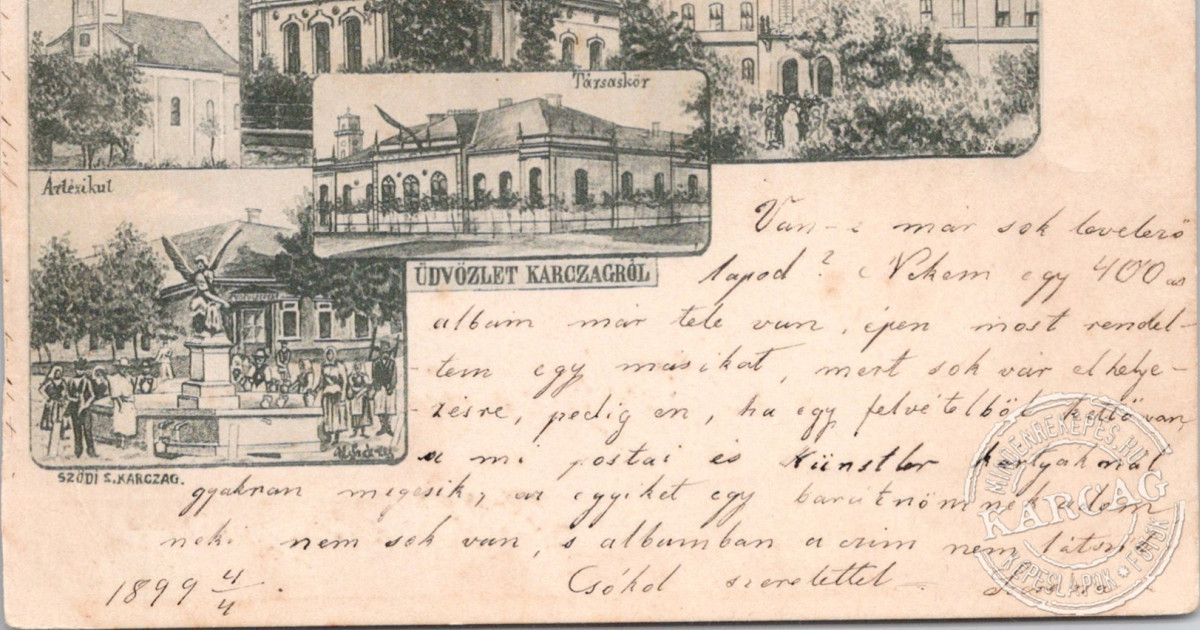 Társaskör
Ártézikut
ÜDVÖZLET KARCZAGRÓL
SZŐDI S. KARCZAG.
Van-e már sok levelező
lapod? Nekem egy 400 as
album már tele van, épen most rendel-
tem egy masikat, mert sok vár elhelye-
zésre, pedig én, ha egy felvételből kettő van,
a mi postai és Künstler kartyaknál
gyakran megesik, az egyiket egy barátnőmnek adom
neki nem sok van, s albumban a czim nem látszik
Csókol szeretettel
1899 4/4
MINDENREKEPES.HU
KARCAG
KÉPESLAPOK FOTÓK